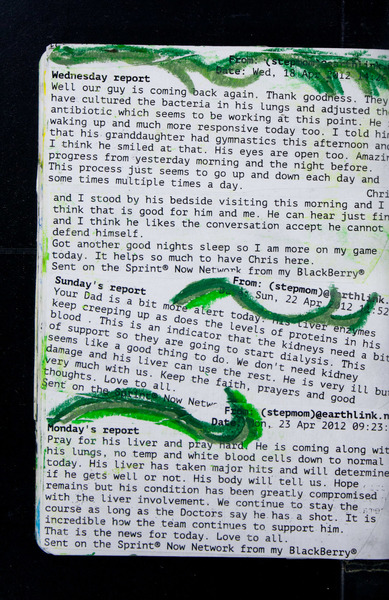 From: (stepmom)@earthlink
Date: Wed, 18 Apr 2012
Wednesday report
Well our guy is coming back again. Thank goodness. They
have cultured the bacteria in his lungs and adjusted the
antibiotic which seems to be working at this point. He
waking up and much more responsive today too. I told him
that his granddaughter had gymnastics this afternoon and
I think he smiled at that. His eyes are open too.
progress from yesterday morning and the night before.
This process just seems to go up and down each day and
some times multiple times a day.
Chri
and I stood by his bedside visiting this morning and I
think that is good for him and me. He can hear just fin
and I think he likes the conversation accept he cannot
defend himself.
Got another good nights sleep so I am more on my game
today. It helps so much to have Chris here.
Sent on the Sprint® Now Network from my BlackBerry®
From: (stepmom)@earthlink.
Sun, 22 Apr 2012 :52
Sunday's report
Your Dad is a bit more alert today. His liver enzymes
keep creeping up as does the levels of proteins in his
blood . This is an indicator that the kidneys need a bit
of support so they are going to start dialysis. This
seems like a good thing to do. We don't need kidney
damage and his liver can use the rest. He is very ill but
very much with us. Keep the faith, prayers and good
thoughts. Love to all.
Sent on the Sprint® Now Netw
From: (stepmom)@earthlink.n
Date: Mon, 23 Apr 2012 09:23:
Monday's report
Pray for his liver and pray hard. He is coming along wit
his lungs, no temp and white blood cells down to normal
today. His liver has taken major hits and will determine
if he gets well or not. His body will tell us. Hope
remains but his condition has been greatly compromised
with the liver involvement. We continue to stay the
course as long as the Doctors say he has a shot. It is
incredible how the team continues to support him.
That is the news for today. Love to all.
Sent on the Sprint® Now Network from my BlackBerry®